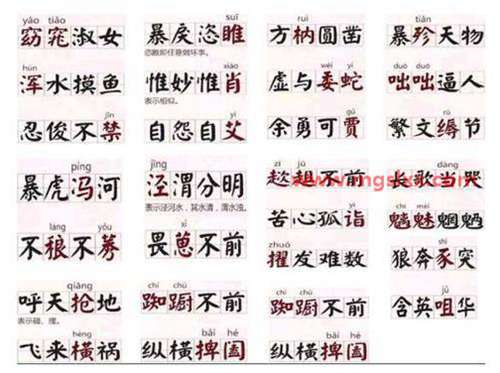 yǎo tiǎo
窈窕淑女
suī
暴戾恣睢
恣睢即任意做坏事。
ruì
方枘圆凿
tiǎn
暴殄天物
hún
浑水摸鱼
xiào
惟妙惟肖
表示相似。
wēi yí
虚与委蛇
duō duō
咄咄逼人
jīn
忍俊不禁
yì
自怨自艾
gǔ
余勇可贾
rù
繁文缛节
píng
暴虎冯河
jīng
泾渭分明
表示泾河水，其水清，渭水浊。
zī jū
趑趄不前
dàng
长歌当哭
láng yǒu
不稂不莠
xǐ
畏葸不前
yì
苦心孤诣
魑魅魍魉
zhuó
擢发难数
shǐ
狼奔豕突
qiāng
呼天抢地
表示碰、撞。
chí chú
踟蹰不前
chí chú
踟蹰不前
jǔ
含英咀华
hèng
飞来横祸
bǎi hé
纵横捭阖
bǎi hé
纵横捭阖